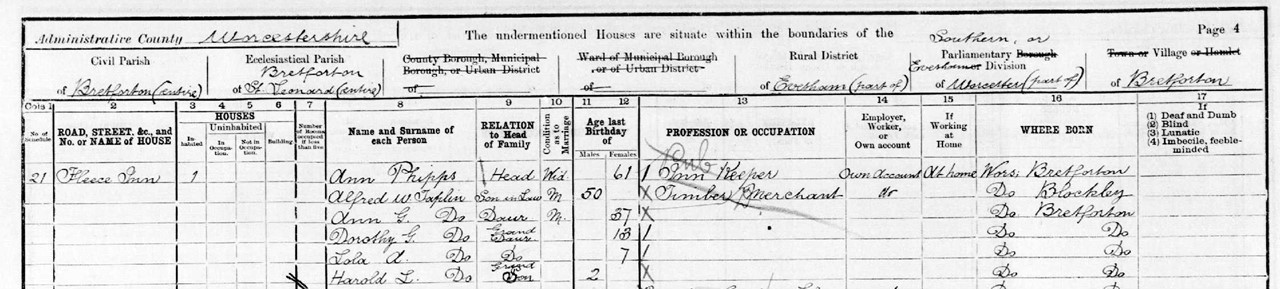 Page 4
Administrative County Worcestershire
The undermentioned Houses are situate within the boundaries of the
Civil Parish
of Bretforton (entire)
Ecclesiastical Parish
Bretforton
of St. Leonard (entire)
County Borough, Municipal
Borough, or Urban District
of
Ward of Municipal Borough
or of Urban District
of
Rural District
of Evesham (part of)
Southern, or
Parliamentary Borough
Evesham or Division
of Worcester (part of)
Town or Village or Hamlet
of Bretforton
Cols 1 2 3 4 5 6 7 8 9 10 11 12 13 14 15 16 17
No. of Schedule
ROAD, STREET, &c., and No. or NAME of HOUSE
HOUSES
Inhabited
Uninhabited
In Occupation.
Not in Occupation.
Building
Number of Rooms occupied if less than five
Name and Surname of each Person
RELATION to Head of Family
Condition as to Marriage
Age last Birthday of
Males Females
PROFESSION OR OCCUPATION
Employer, Worker, or Own account
If Working at Home
WHERE BORN
If
(1) Deaf and Dumb
(2) Blind
(3) Lunatic
(4) Imbecile, feeble-minded
Pub
21 Fleece Inn 1 Ann Phipps Head Wid 61 Inn Keeper Own Account At home Wors; Bretforton
Alfred W Taplin Son in Law M 50 X Timber Merchant do Do Blockley
Ann G. Do Daur M. 37 X Do Bretforton
Dorothy G. Do Grand Daur 13 Do Do
Lola A. Do Do 7 Do Do
Harold L. Do Grand Son 2 X Do Do